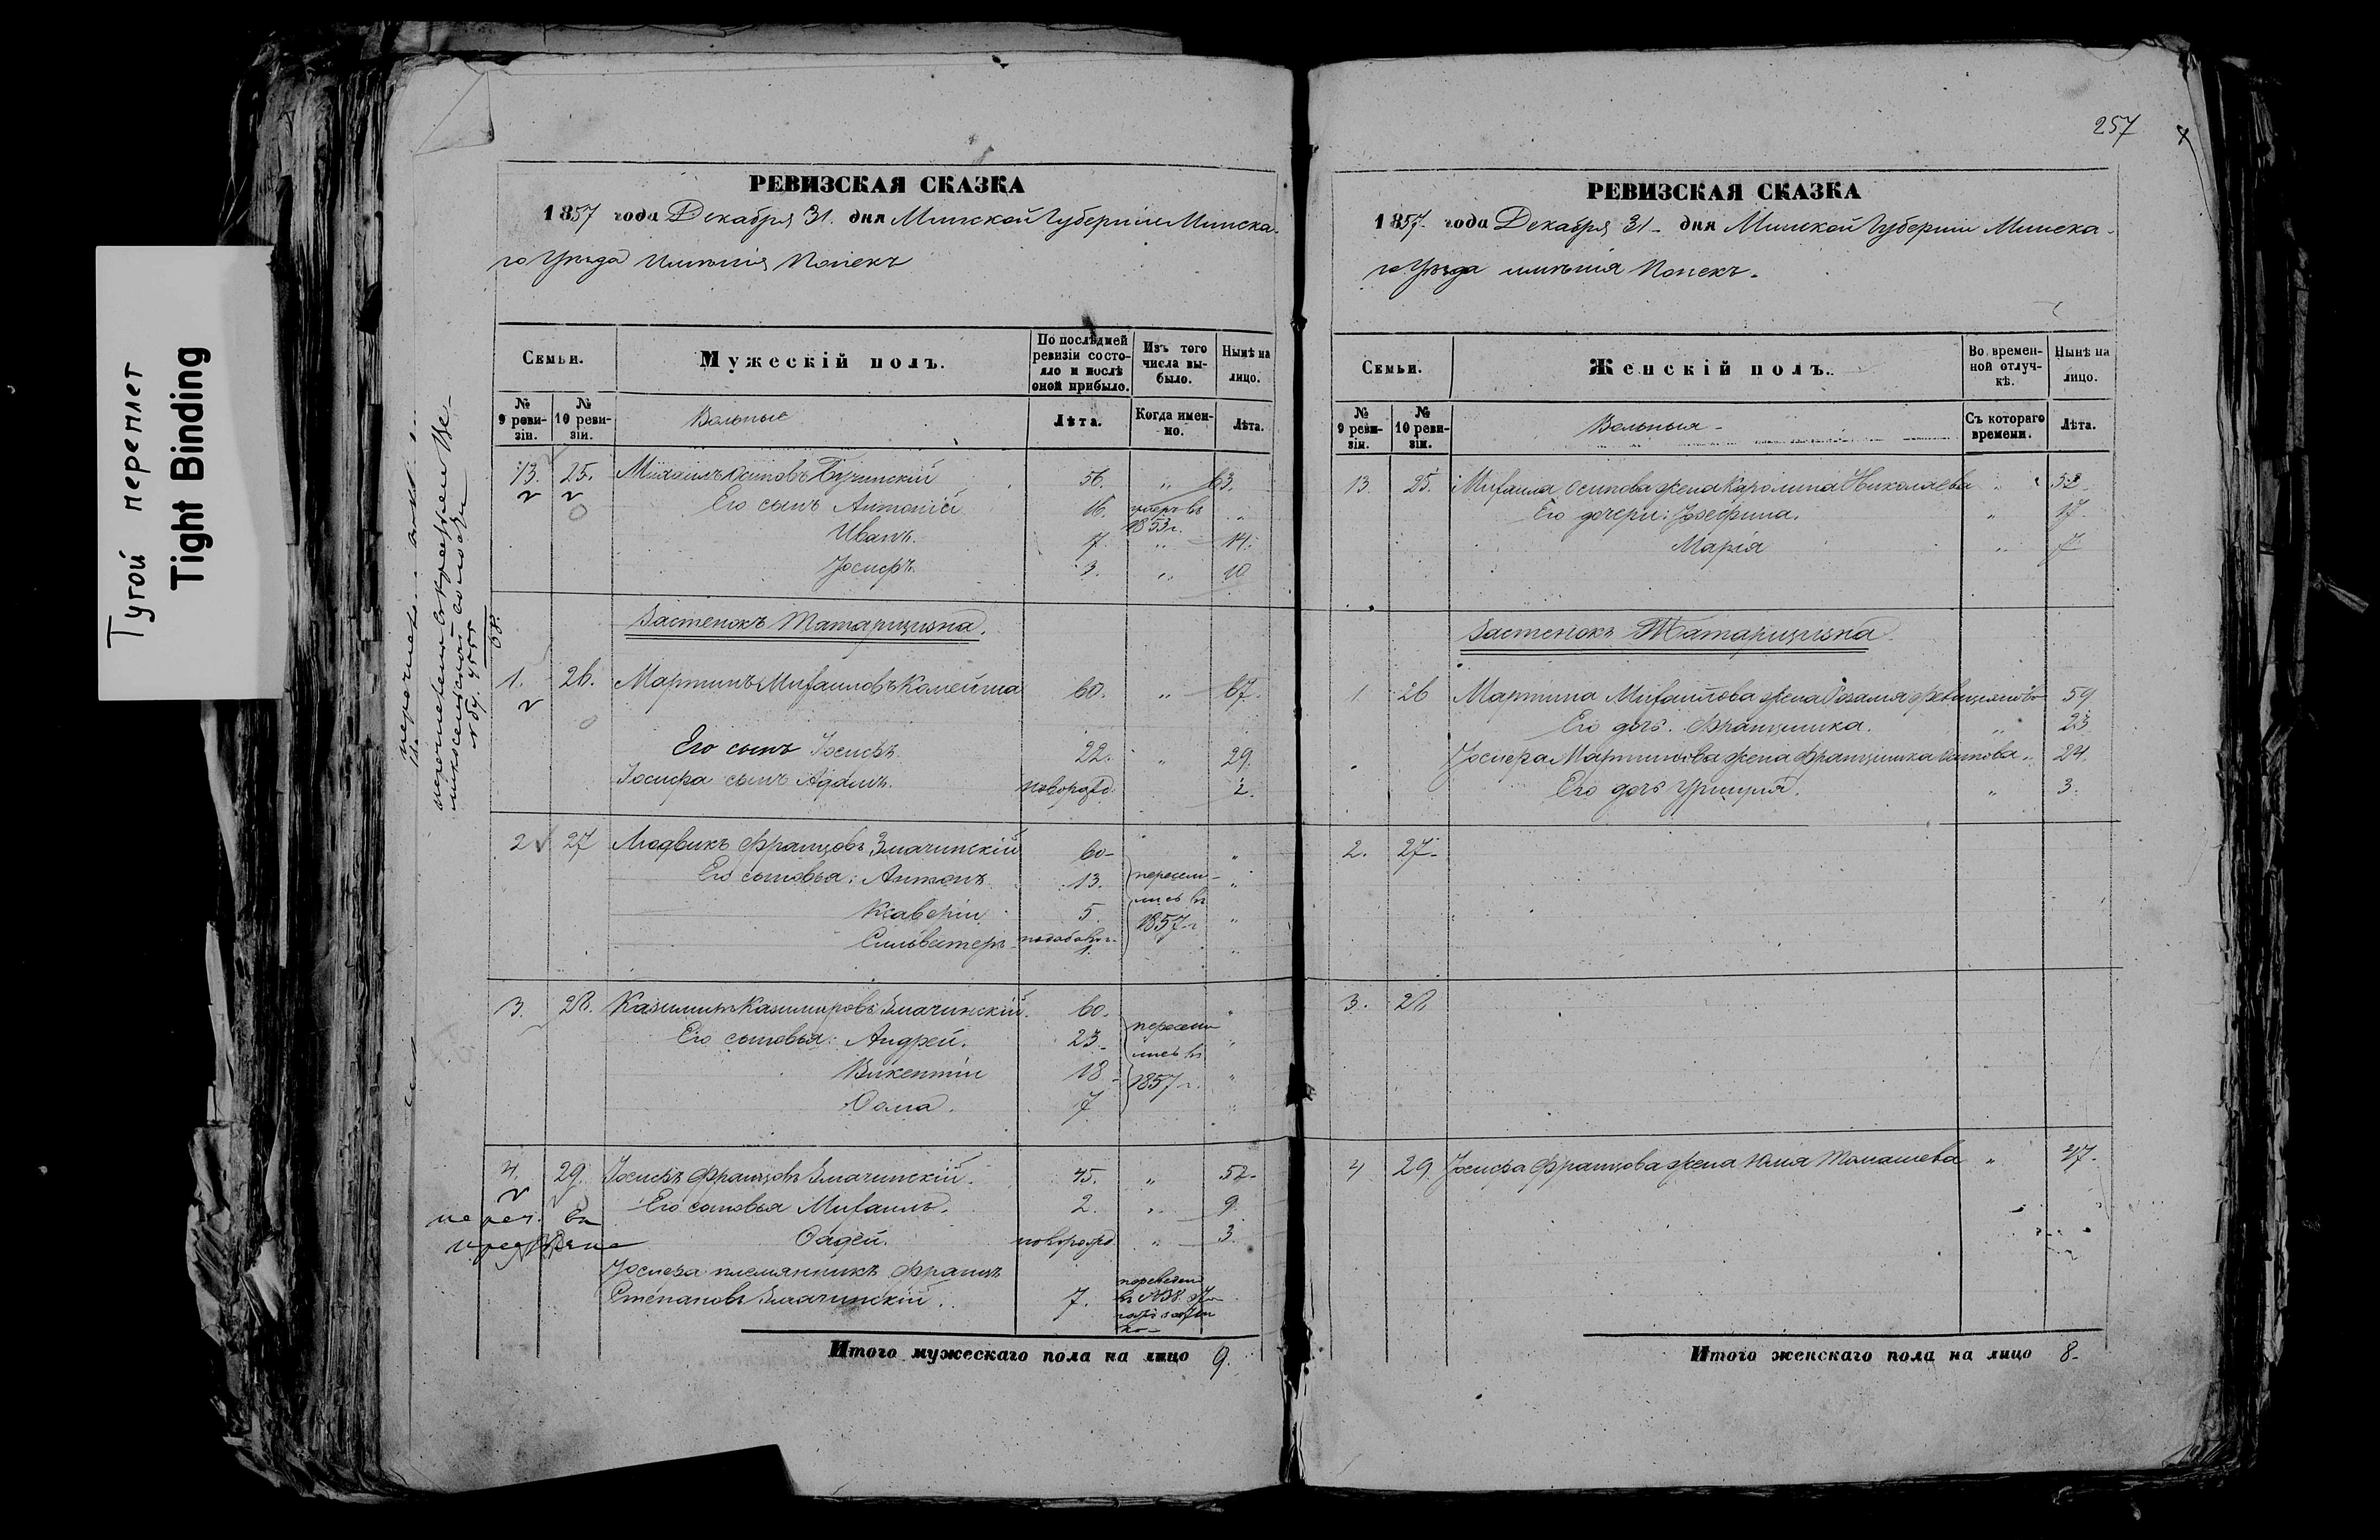 Тугой переплет
Tight Binding
РЕВИЗСКАЯ СКАЗКА
1857 года Декабря 31. дня Минской Губернии Минска-
го Уѣзда Имѣнія Попекъ
Семьи.
Мужескій полъ.
По послѣдней ревизіи состояло и послѣ оной прибыло.
Изъ того числа выбыло.
Нынѣ на лицо.
№ 9 ревизіи.
№ 10 ревизіи.
Вольные
Лѣта.
Когда именно.
Лѣта.
13. 25. Михаилъ Осиповъ 56. „ 63.
Его сынъ Антоній 16. умеръ въ 1853 г. „
Иванъ. 7. „ 14.
Іосифъ. 3. „ 10
Застенокъ Татарщизна.
1. 26. Мартинъ Михаиловъ Копейша 60. „ 67.
Его сынъ Іосифъ. 22. „ 29.
Іосифа сынъ Адамъ. новорожд. 2.
2 27 Людвикъ Францовъ Змачинскій 60- „
Его сыновья: Антонъ 13. пересели- „
Ксаверіи 5. лись въ „
Сильвестеръ 1857 г. „
3. 28. Казимиръ Казимировъ Змачинскій. 60. „
Его сыновья: Андрей. 23- пересели „
Викентіи 18 лись въ „
Ѳома. 7 1857 г. „
4. 29. Іосифъ Францовъ Змачинскій. 45. „ 52-
Его сыновья Михаилъ. 2. „ 9.
Ѳадей. новорожд „ 3.
Іосифа племянникъ Францъ
Степановъ Змачинскій. 7. переведен
Итого мужескаго пола на лицо 9.
257
РЕВИЗСКАЯ СКАЗКА
1857. года Декабря 31- дня Минской Губерніи Минска-
го Уѣзда имѣнія Попекъ.
Семьи.
Женскій полъ.
Во временной отлучкѣ.
Нынѣ на лицо.
№ 9 ревизіи.
№ 10 ревизіи.
Вольныя-
Съ котораго времени.
Лѣта.
13. 25. Михаила Осипова жена Каролина Николаева „ 52
Его дочери: Іозефина. „ 17
Марія „ 7
Застенокъ Татарщизна.
1. 26 Мартина Михайлова жена Розалія 59
Его дочь. Францишка. „ 23
Іосифа Мартинова жена Францишка „ 24.
Его дочь Уршуля. „ 3.
2. 27-
3. 28
4 29. Іосифа Францова жена Юлія Томашева „ 47-
Итого женскаго пола на лицо 8-